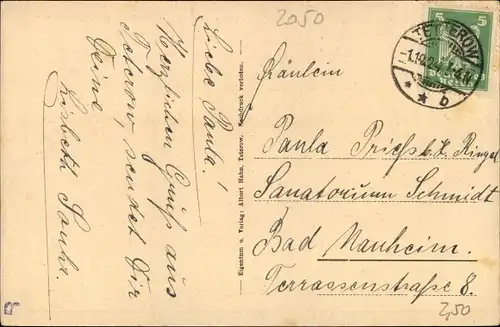 2050
Liebe Paula!
Herzlichen Gruß aus
Teterow, sendet Dir
Deine
Lisbeth
Eigentum u. Verlag: Albert Hahn, Teterow. Nachdruck verboten.
TETEROW
b
5 5
Fräulein
Paula
Sanatorium Schmidt
Bad Nauheim.
Terrassenstraße 8.
2,50